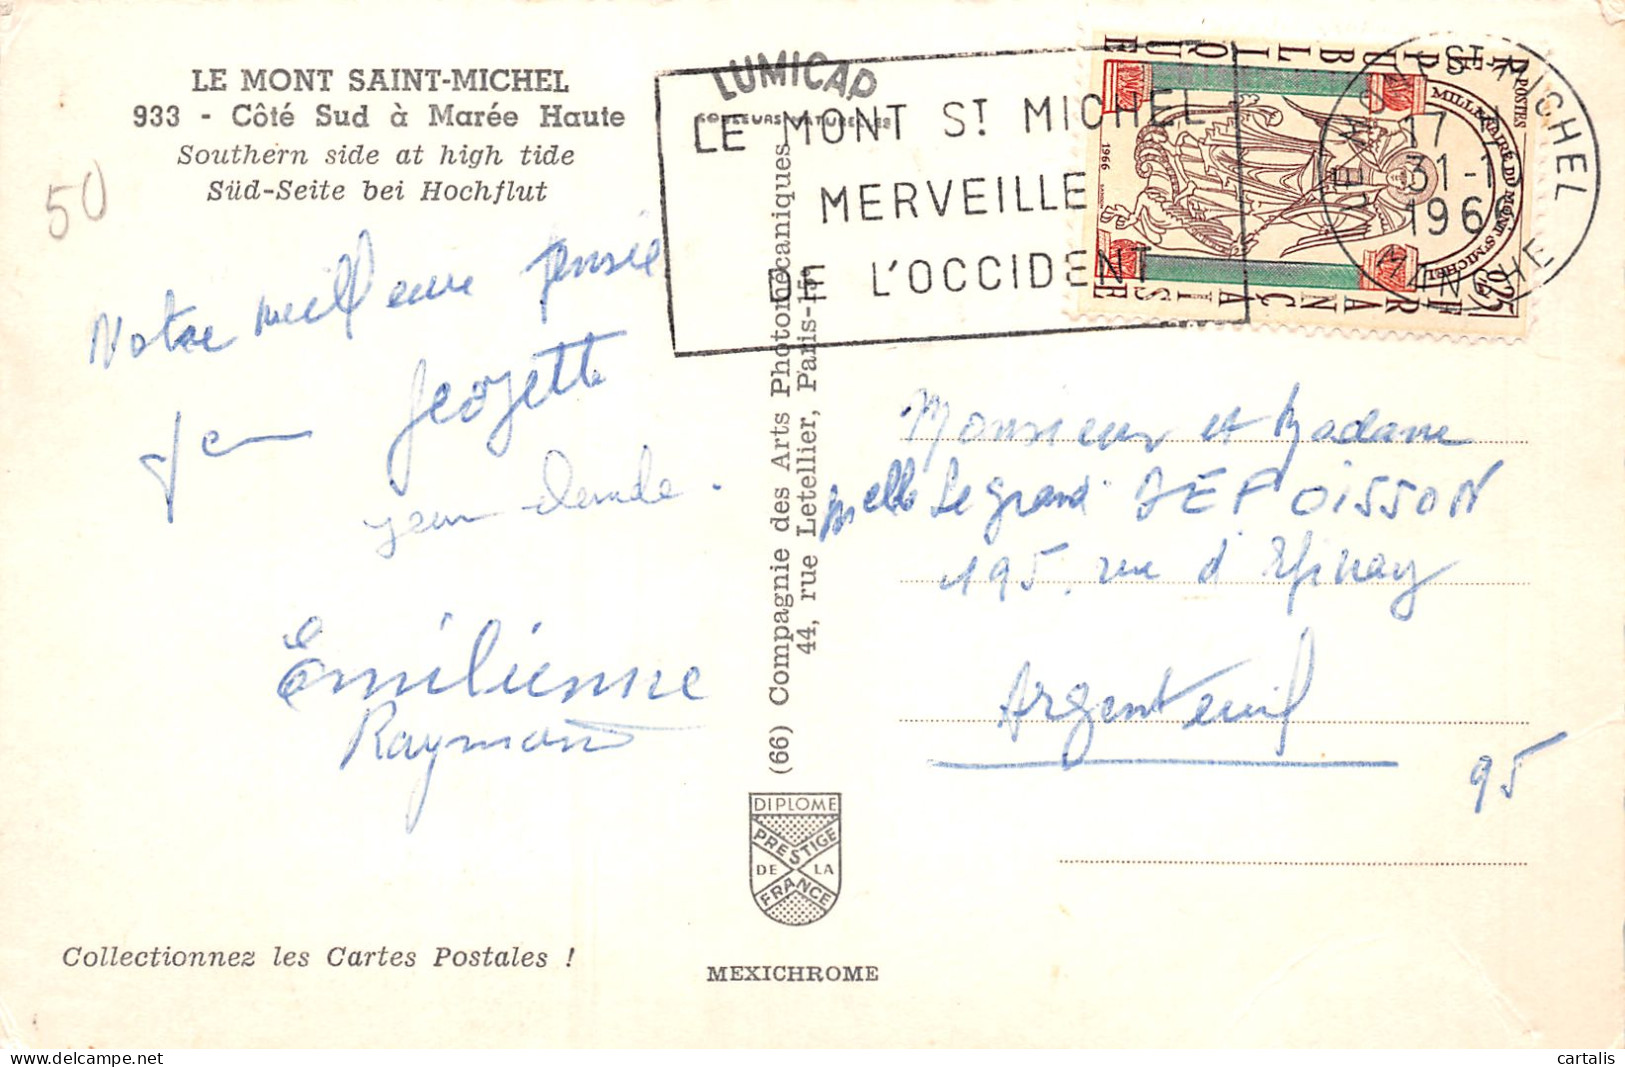 LE MONT SAINT-MICHEL
933 - Côté Sud à Marée Haute
Southern side at high tide
Süd-Seite bei Hochflut
50
Notre meilleure pensée
Jean Georgette
Jean Claude.
Emilienne
Raymond
Collectionnez les Cartes Postales !
LUMICAP
COULEURS NATURELLES
LE MONT ST MICHEL
MERVEILLE
DE L'OCCIDENT
ST MICHEL
17
31-1
196
MANCHE
RÉPUBLIQUE
FRANÇAISE
POSTES
MILLÉNAIRE DU MONT ST MICHEL
0,25
1966
(66) Compagnie des Arts Photomécaniques
44, rue Letellier, Paris-15e
DIPLOME
PRESTIGE
DE LA
FRANCE
MEXICHROME
Monsieur et Madame
Melle Legrand DEPOISSON
195, rue d'Epinay
Argenteuil
95
cartalis